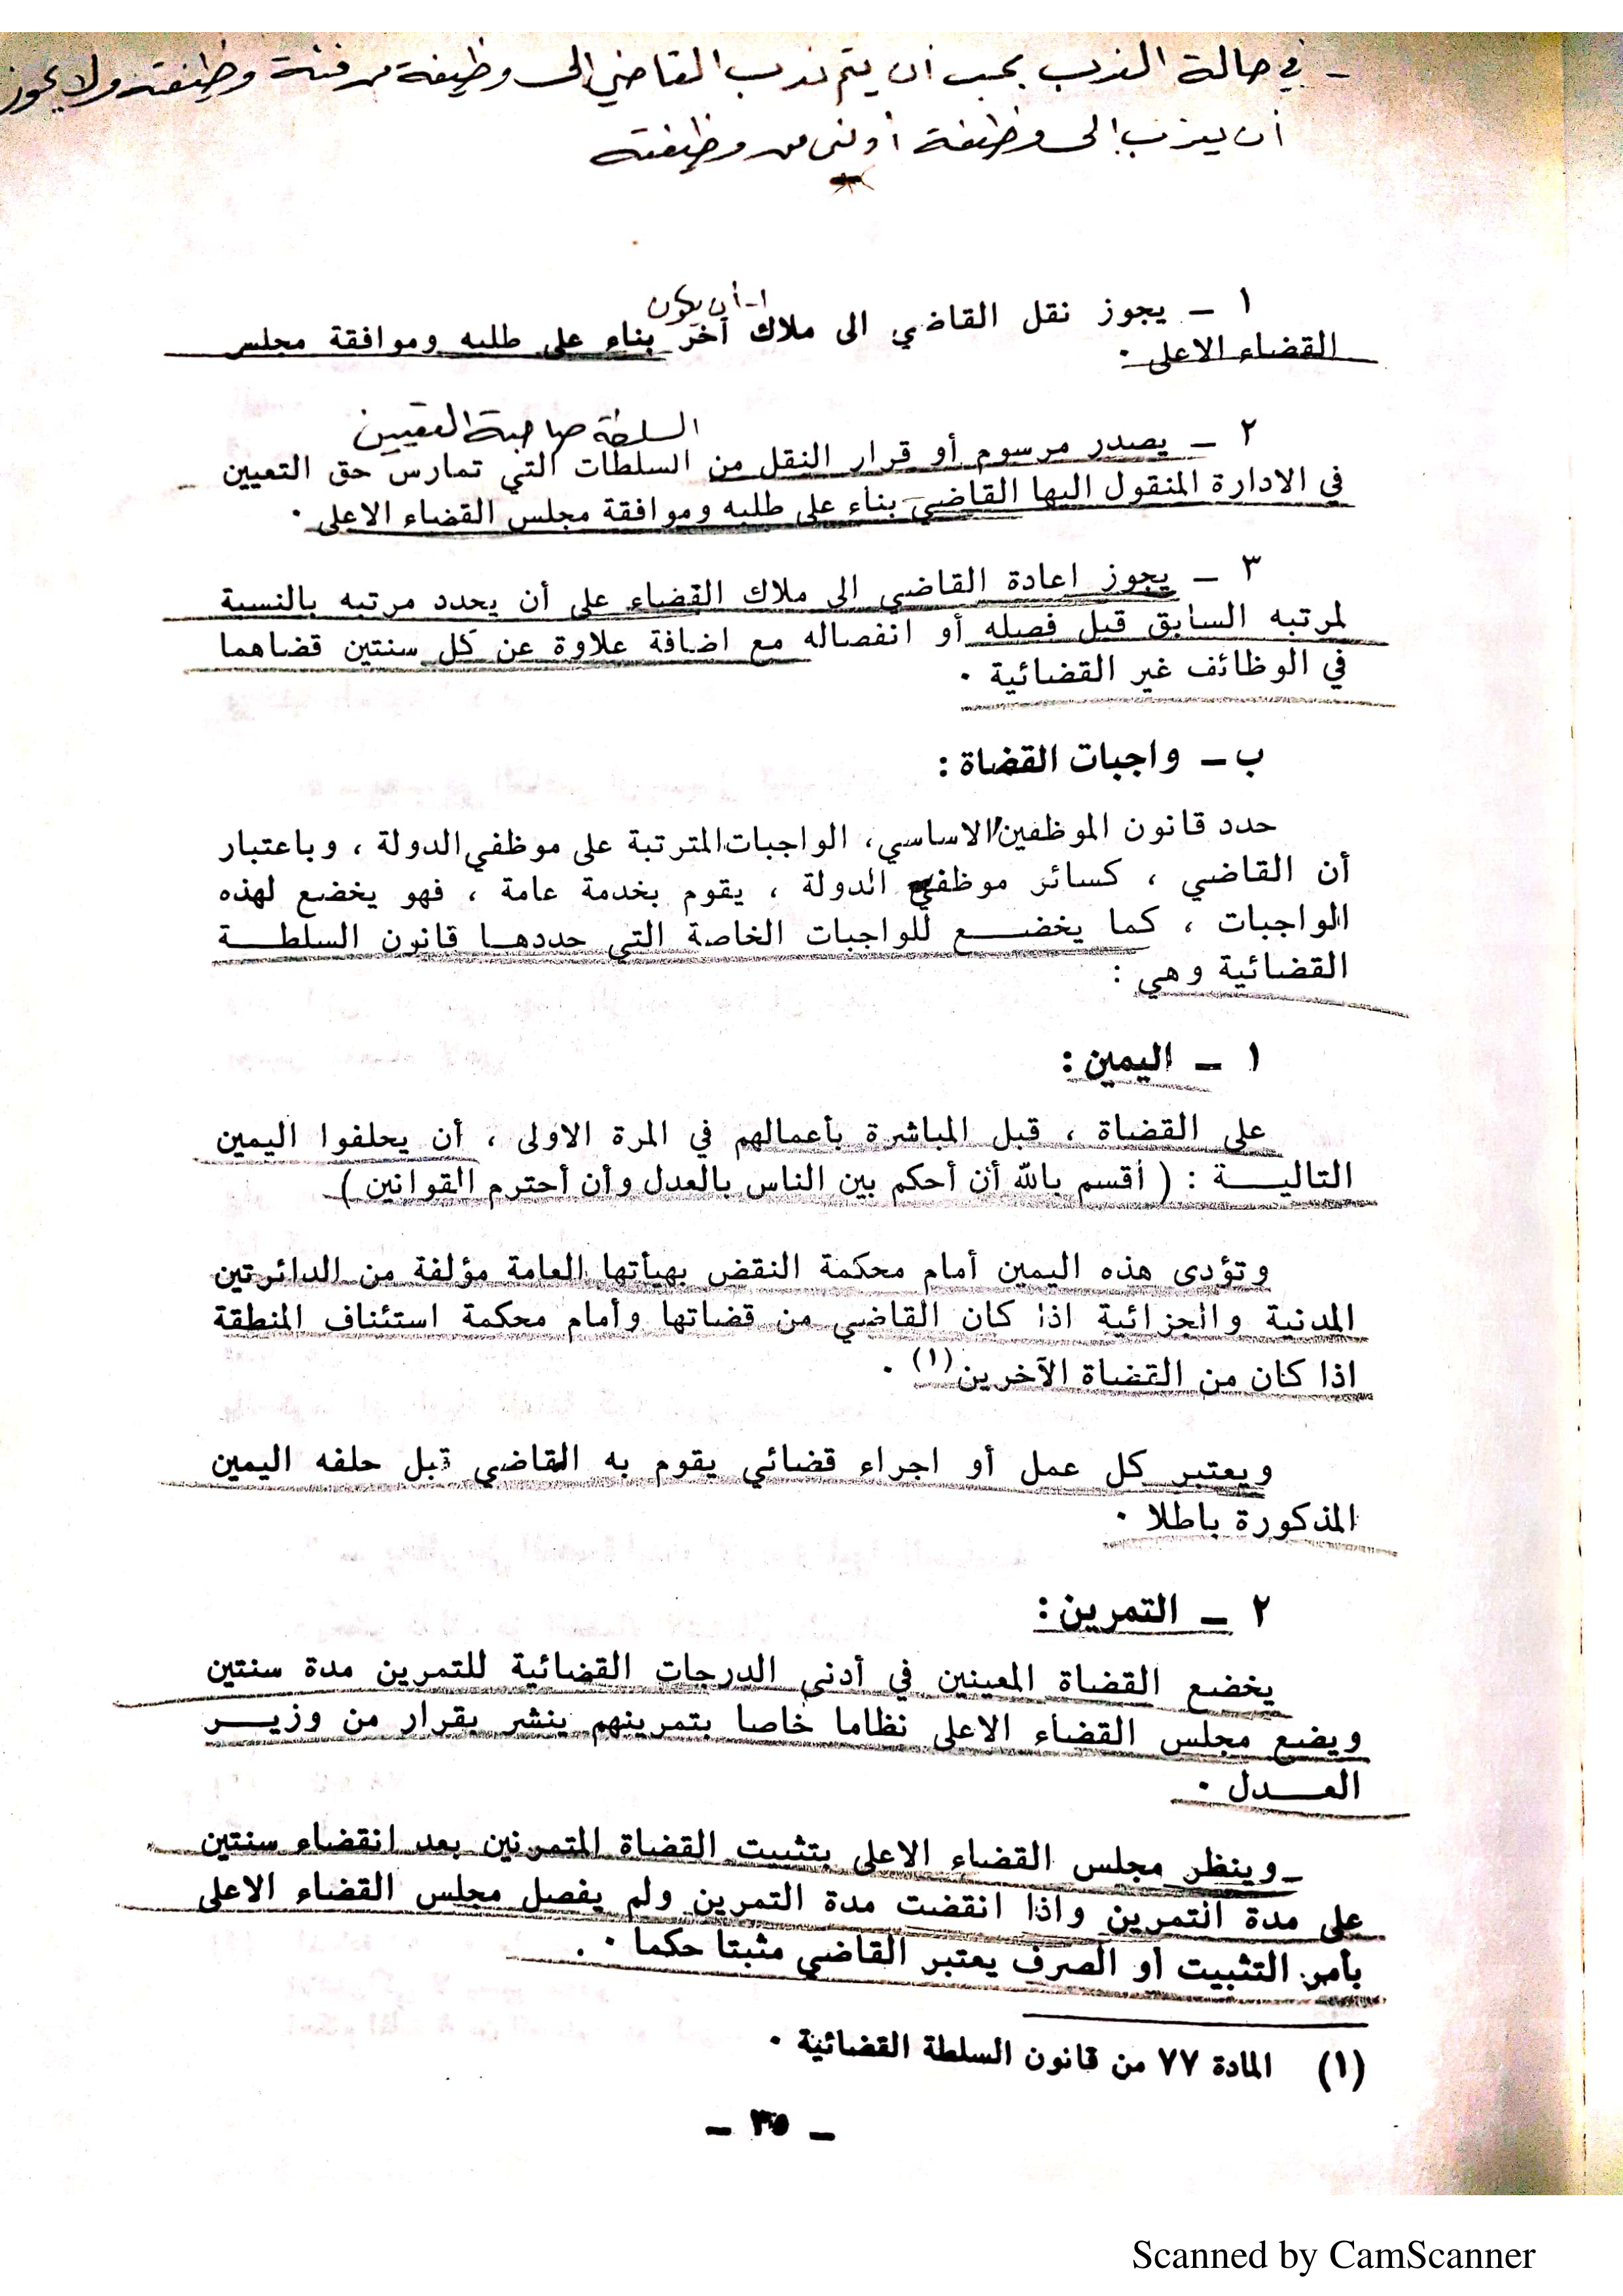 - في حالة الندب يجب أن يتم ندب القاضي الى وظيفة من فئة وظيفته ولا يجوز
أن يندب إلى وظيفة أدنى من وظيفته
١-أن يكون
١ ـ يجوز نقل القاضي الى ملاك آخر بناء على طلبه وموافقة مجلس
القضاء الاعلى ٠
السلطة صاحبة التعيين
٢ ـ يصدر مرسوم أو قرار النقل من السلطات التي تمارس حق التعيين
في الادارة المنقول اليها القاضي بناء على طلبه وموافقة مجلس القضاء الاعلى ٠
٣ ـ يجوز اعادة القاضي الى ملاك القضاء على أن يحدد مرتبه بالنسبة
لمرتبه السابق قبل فصله أو انفصاله مع اضافة علاوة عن كل سنتين قضاهما
في الوظائف غير القضائية ٠
ب ـ واجبات القضاة :
حدد قانون الموظفين الاساسي، الواجبات المترتبة على موظفي الدولة ، وباعتبار
أن القاضي ، كسائر موظفي الدولة ، يقوم بخدمة عامة ، فهو يخضع لهذه
الواجبات ، كما يخضـــع للواجبات الخاصة التي حددهـا قانون السلطـــة
القضائية وهي :
١ ـ اليمين :
على القضاة ، قبل المباشرة بأعمالهم في المرة الاولى ، أن يحلفوا اليمين
التاليـــة : ( أقسم بالله أن أحكم بين الناس بالعدل وأن أحترم القوانين )
وتؤدى هذه اليمين أمام محكمة النقض بهيأتها العامة مؤلفة من الدائرتين
المدنية والجزائية اذا كان القاضي من قضاتها وأمام محكمة استئناف المنطقة
اذا كان من القضاة الآخرين (١) ٠
ويعتبر كل عمل أو اجراء قضائي يقوم به القاضي قبل حلفه اليمين
المذكورة باطلا ٠
٢ ـ التمرين :
يخضع القضاة المعينين في أدنى الدرجات القضائية للتمرين مدة سنتين
ويضع مجلس القضاء الاعلى نظاما خاصا بتمرينهم ينشر بقرار من وزيـــر
العـــدل ٠
وينظر مجلس القضاء الاعلى بتثبيت القضاة المتمرنين بعد انقضاء سنتين
على مدة التمرين واذا انقضت مدة التمرين ولم يفصل مجلس القضاء الاعلى
بأمر التثبيت او الصرف يعتبر القاضي مثبتا حكما ٠
(١) المادة ٧٧ من قانون السلطة القضائية ٠
ـ ٣٥ ـ
Scanned by CamScanner